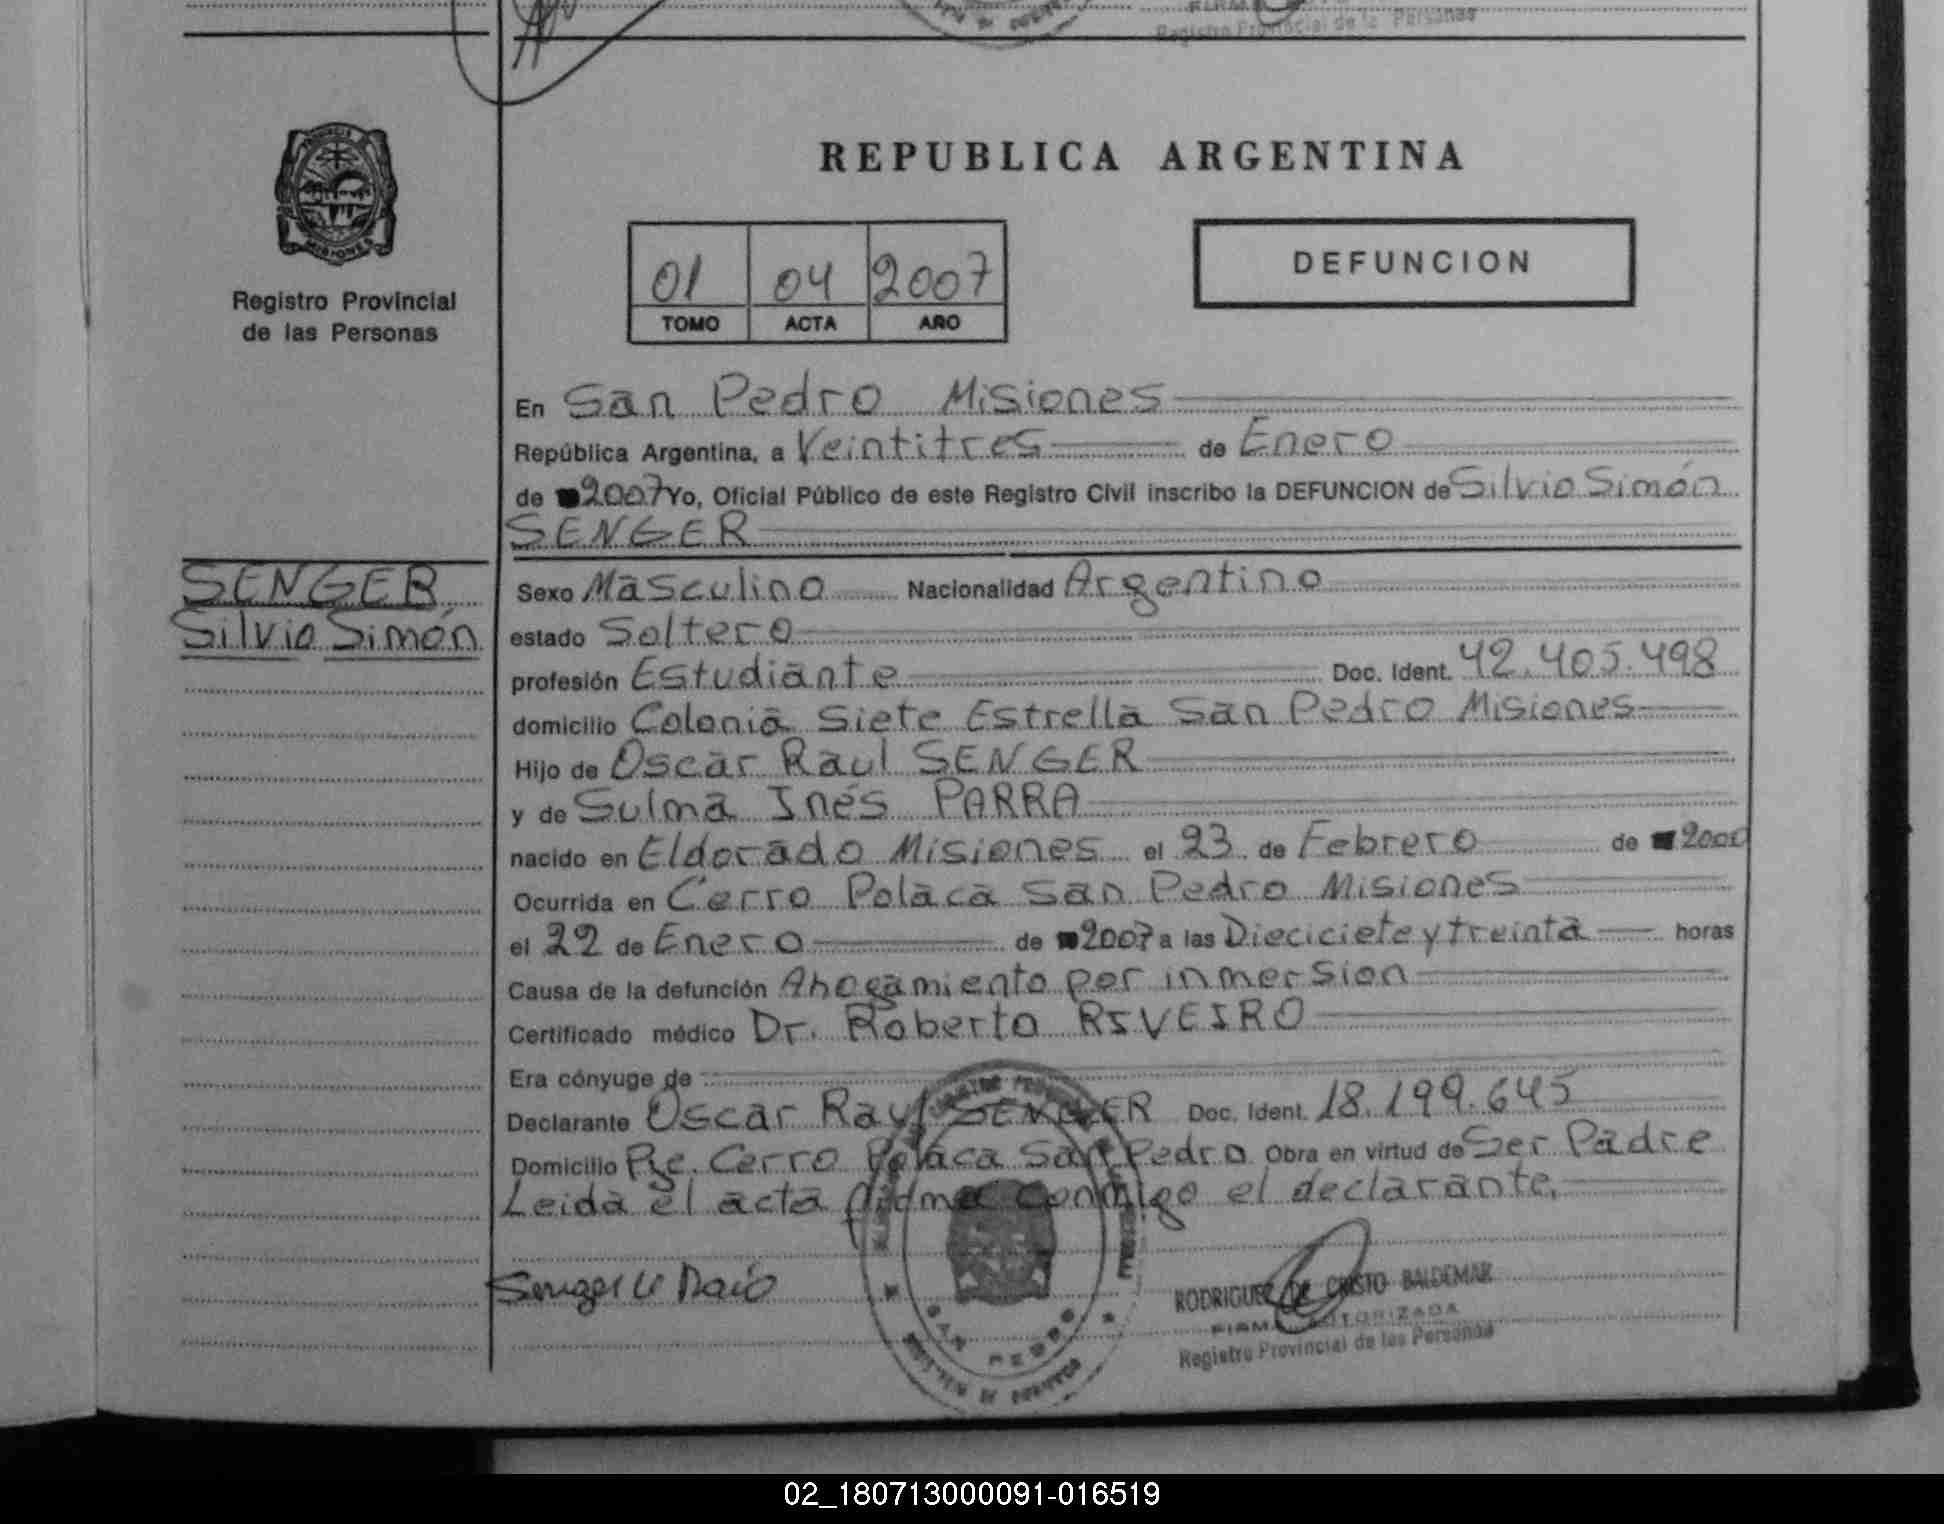 Registro Provincial de la Personas
PROVINCIA DE
MISIONES
Registro Provincial
de las Personas
REPUBLICA ARGENTINA
01 04 2007
TOMO ACTA AÑO
DEFUNCION
En San Pedro Misiones
República Argentina, a Veintitres de Enero
de 2007 Yo, Oficial Público de este Registro Civil inscribo la DEFUNCION de Silvio Simón
SENGER
SENGER
Silvio Simón
Sexo Masculino Nacionalidad Argentino
estado Soltero
profesión Estudiante Doc. Ident. 42.405.498
domicilio Colonia Siete Estrella San Pedro Misiones
Hijo de Oscar Raul SENGER
y de Sulma Inés PARRA
nacido en Eldorado Misiones el 23 de Febrero de 2000
Ocurrida en Cerro Polaca San Pedro Misiones
el 22 de Enero de 2007 a las Dieciciete y treinta horas
Causa de la defunción Ahogamiento por inmersion
Certificado médico Dr. Roberto RIVEIRO
Era cónyuge de
Declarante Oscar Raul SENGER Doc. Ident. 18.199.645
Domicilio Pje. Cerro Polaca San Pedro Obra en virtud de Ser Padre
Leida el acta firma conmigo el declarante.
SAN PEDRO
RODRIGUEZ DE CRISTO BALDEMAR
FIRMA AUTORIZADA
Registro Provincial de las Personas
02_180713000091-016519